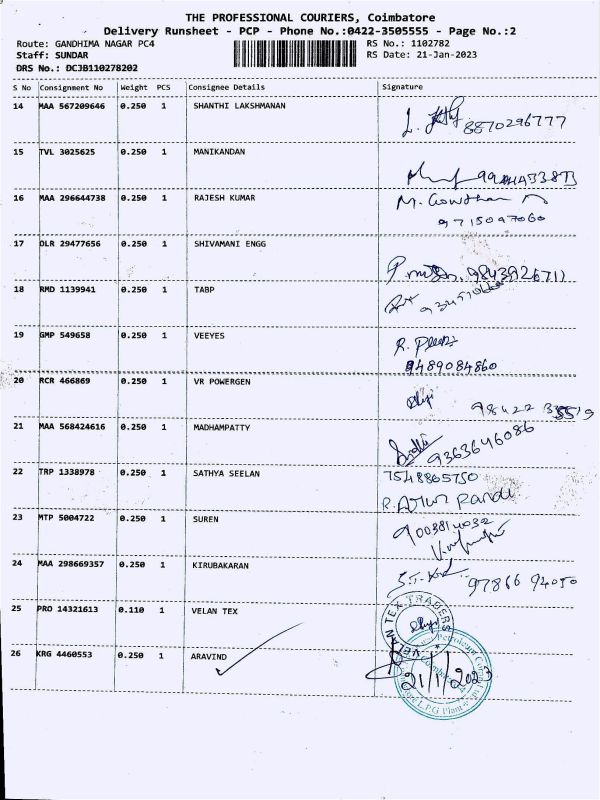 THE PROFESSIONAL COURIERS, Coimbatore
Delivery Runsheet - PCP - Phone No.:0422-3505555 - Page No.:2
Route: GANDHIMA NAGAR PC4
RS No.: 1102782
Staff: SUNDAR
RS Date: 21-Jan-2023
DRS No.: DCJB110278202
S No Consignment No Weight PCS Consignee Details Signature
14 MAA 567209646 0.250 1 SHANTHI LAKSHMANAN
8870296777
15 TVL 3025625 0.250 1 MANIKANDAN
16 MAA 296644738 0.250 1 RAJESH KUMAR M. Gowtham
9715097060
17 DLR 29477656 0.250 1 SHIVAMANI ENGG
9843926711
18 RMD 1139941 0.250 1 TABP
19 GMP 549658 0.250 1 VEEYES
9489084860
20 RCR 466869 0.250 1 VR POWERGEN
21 MAA 568424616 0.250 1 MADHAMPATTY
9363646086
22 TRP 1338978 0.250 1 SATHYA SEELAN 7548865750
R. Arun Pandi
23 MTP 5004722 0.250 1 SUREN
24 MAA 298669357 0.250 1 KIRUBAKARAN
97866 94050
25 PRO 14321613 0.110 1 VELAN TEX
TEX TRADERS
26 KRG 4460553 0.250 1 ARAVIND
21/1/2023